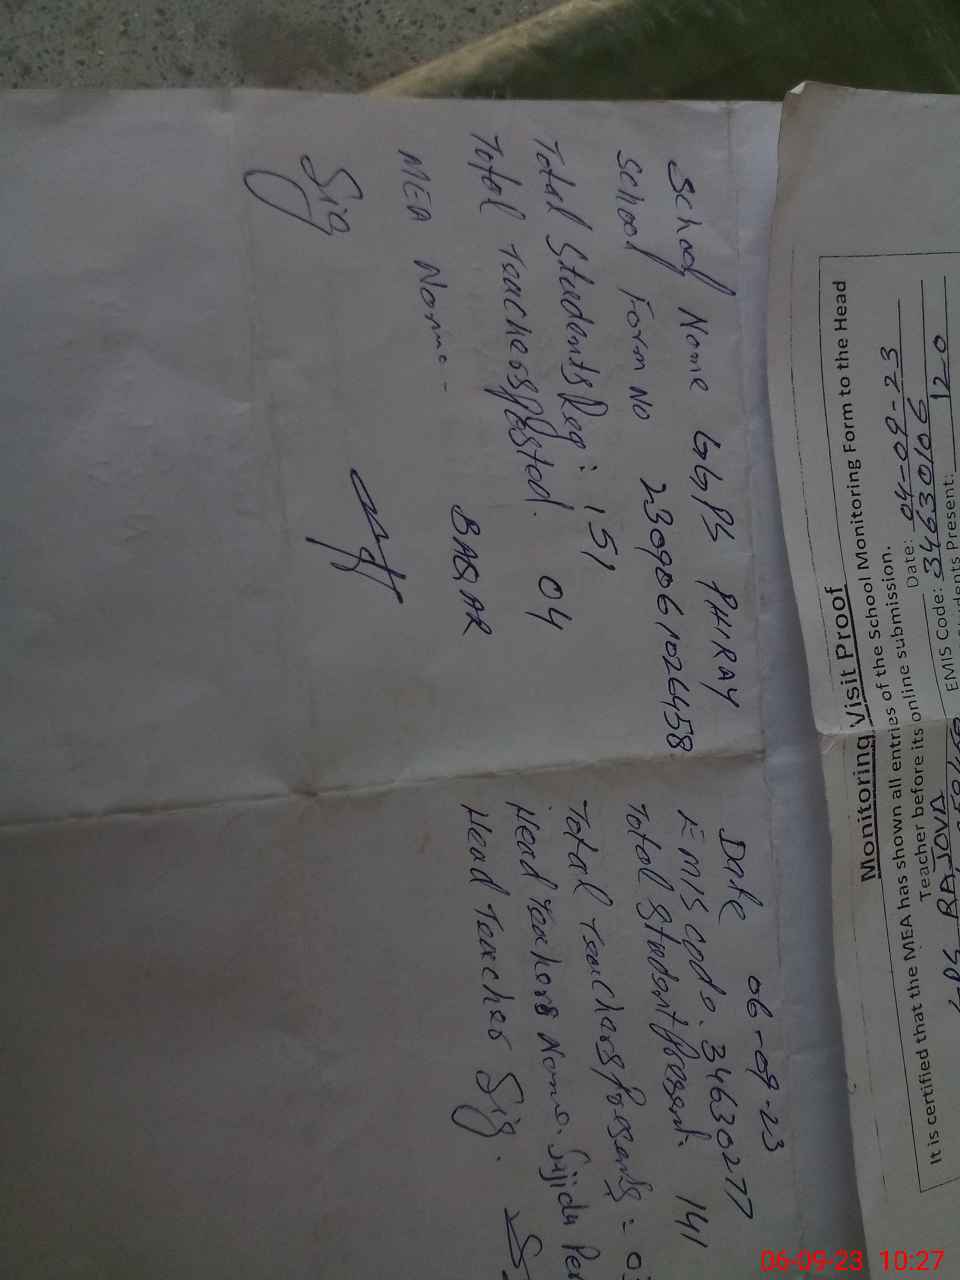 Monitoring Visit Proof
It is certified that the MEA has shown all entries of the School Monitoring Form to the Head
Teacher before its online submission.
Date: 04-09-23
RAJOVA EMIS Code: 34630106
Students Present: 120
School Name GGPS PHIRAY
Date 06-09-23
School Form No
EMIS code. 34630277
Total Students Reg: 151
Total Student Present. 141
Total Teachers Posted. 04
Total Teachers Presents:
MEA Name - BAQAR
Head Teachers Name. Sajida
Sig
Head Teacher Sig.
06-09-23 10:27